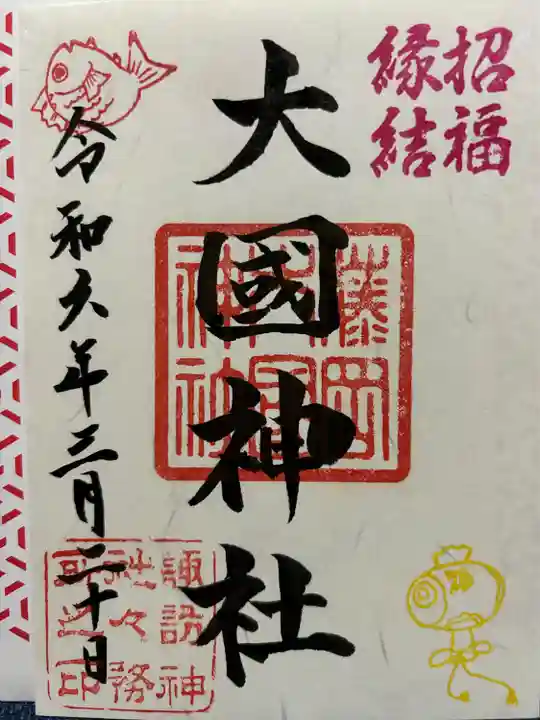 招福
縁結
大國神社
令和六年三月二十日
藤岡
神社
諏訪神
社々務
所之印